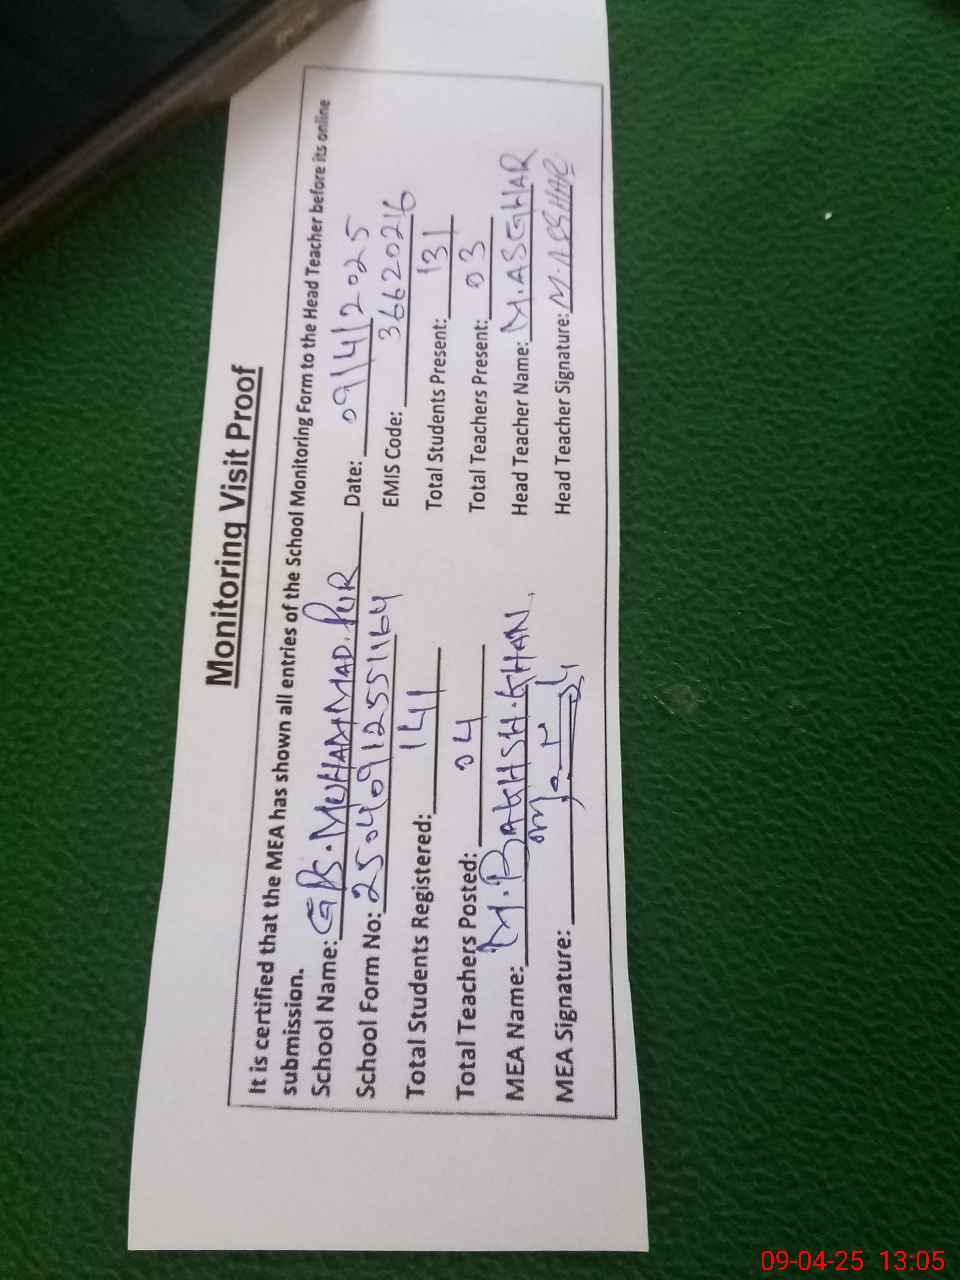 Monitoring Visit Proof
It is certified that the MEA has shown all entries of the School Monitoring Form to the Head Teacher before its online
submission.
School Name: GPS. MUHAMMAD. PUR Date: 09/4/2025
School Form No: 25040912551164 EMIS Code: 36620216
Total Students Registered: 141 Total Students Present: 131
Total Teachers Posted: 04 Total Teachers Present: 03
MEA Name: M. BAKHSH. KHAN. Head Teacher Name: M. ASGHAR
MEA Signature: Head Teacher Signature: M. ASGHAR
09-04-25 13:05